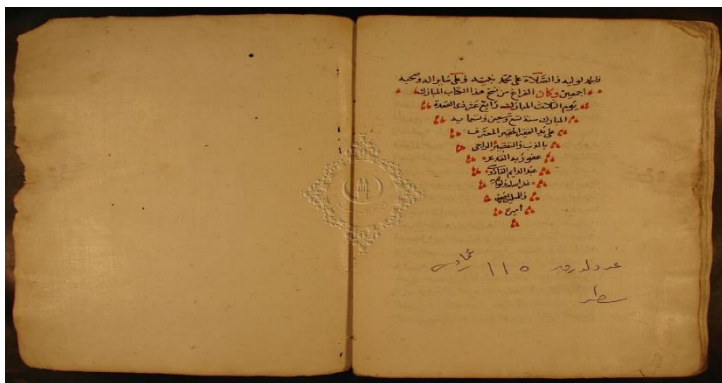 فالحمد لوليه والصلاة على محمد نبيه وعلى ساير اله وصحبه
اجمعين وكان الفراغ من نسخ هذا الكتاب المبارك
يوم الثلاث المبارك رابع عشر ذي القعدة
المبارك سنة تسع وتسعين وتسعمايه
على يد العبد الفقير المعترف
بالذنب والتقصير الراجي
عفو ربه القدير
عبد الدايم
غفر الله له
والمسلمين
امين
١١٥